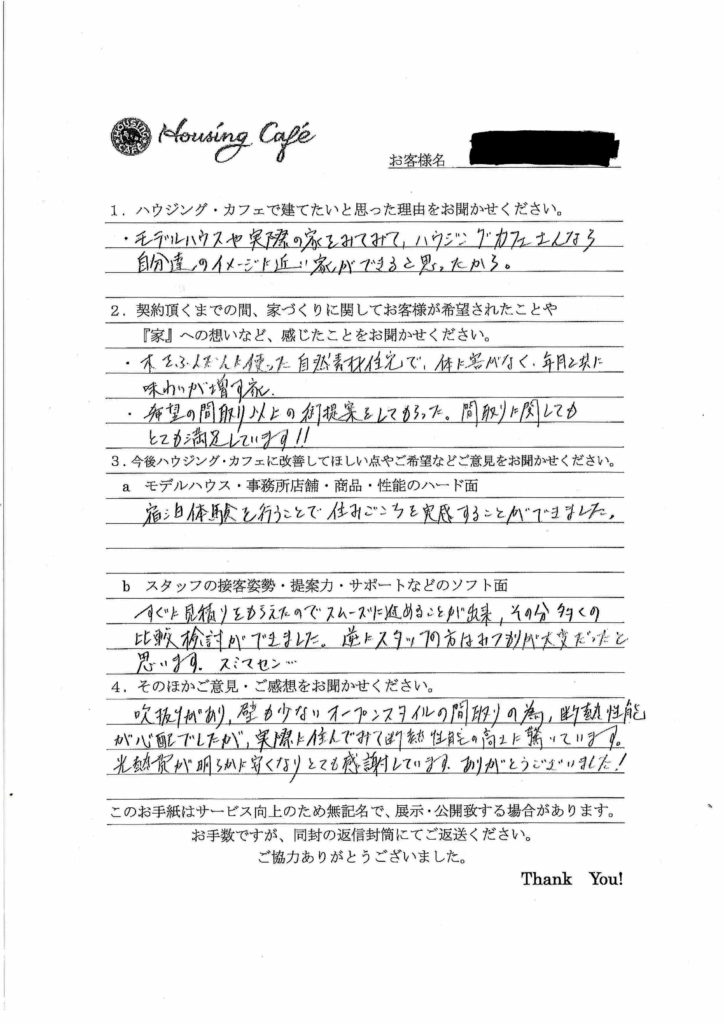 HOUSING CAFE
Housing Café
お客様名
1．ハウジング・カフェで建てたいと思った理由をお聞かせください。
・モデルハウスや実際の家をみてみて、ハウジングカフェさんなら
自分達のイメージに近い家ができると思ったから。
2．契約頂くまでの間、家づくりに関してお客様が希望されたことや
『家』への想いなど、感じたことをお聞かせください。
・木をふんだんに使った自然素材住宅で、体に害がなく、年月と共に
味わいが増す家。
・希望の間取り以上の御提案をしてもらった。間取りに関しても
とても満足しています!!
3．今後ハウジング・カフェに改善してほしい点やご希望などご意見をお聞かせください。
a モデルハウス・事務所店舗・商品・性能のハード面
宿泊体験を行うことで住みごこちを実感することができました。
b スタッフの接客姿勢・提案力・サポートなどのソフト面
すぐに見積りをもらえたのでスムーズに進めることが出来、その分多くの
比較検討ができました。逆にスタッフの方は が大変だったと
思います。スミマセン…
4．そのほかご意見・ご感想をお聞かせください。
吹抜けがあり、壁も少ないオープンスタイルの間取りの為、断熱性能
が心配でしたが、実際に住んでみて断熱性能の高さに驚いています。
光熱費が明らかに安くなりとても感謝しています。ありがとうございました!
このお手紙はサービス向上のため無記名で、展示・公開致する場合があります。
お手数ですが、同封の返信封筒にてご返送ください。
ご協力ありがとうございました。
Thank You!